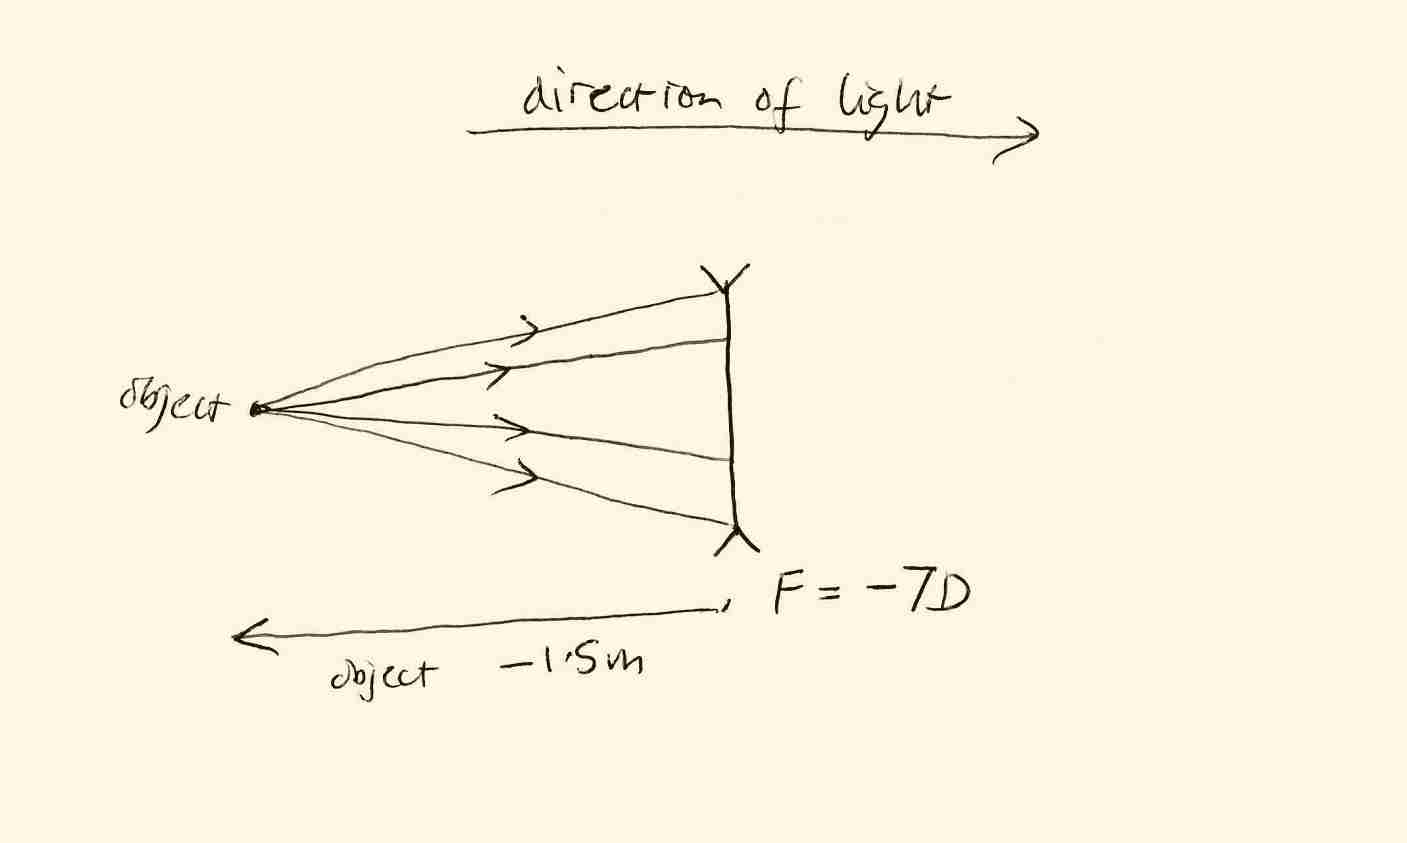 direction of light
object
F = -7D
object -1.5m